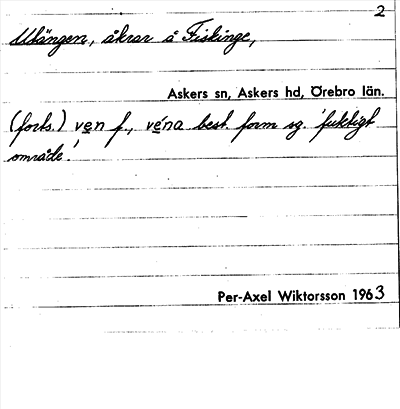 2
Ulvängen, åkrar å Fiskinge,
Askers sn, Askers hd, Örebro län.
(forts.) ven f., véna best. form sg. 'fuktigt
område'.
Per-Axel Wiktorsson 1963